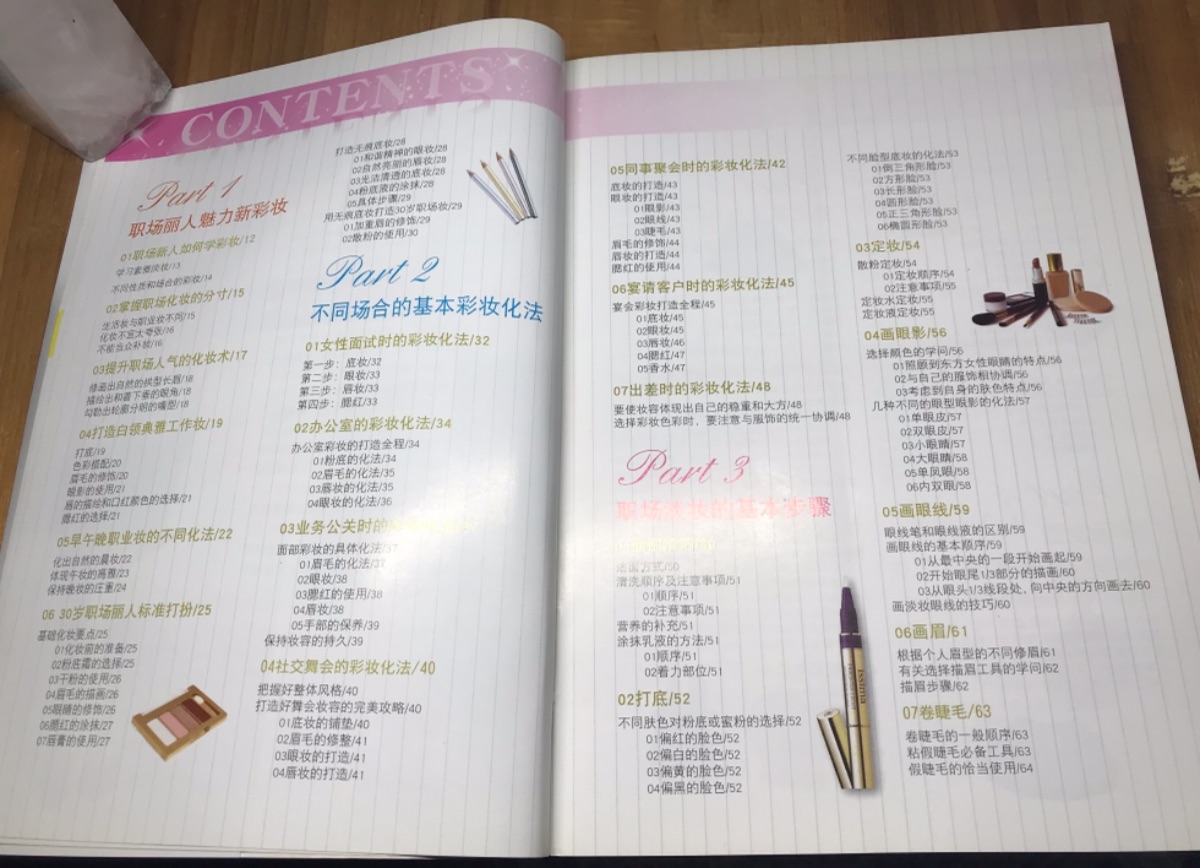 CONTENTS
Part 1
职场丽人魅力新彩妆
01职场新人如何学彩妆/12
学习素雅淡妆/13
不同性质和场合的彩妆/14
02掌握职场化妆的分寸/15
生活妆与职业妆不同/15
化妆不宜太夸张/16
不能当众补妆/16
03提升职场人气的化妆术/17
修画出自然的拱型长眉/18
描绘出和善下垂的眼角/18
勾勒出轮廓分明的嘴型/18
04打造白领典雅工作妆/19
打底/19
色彩搭配/20
眉毛的修饰/20
眼影的使用/21
唇的描绘和口红颜色的选择/21
腮红的选择/21
05早午晚职业妆的不同化法/22
化出自然的晨妆/22
体现午妆的高雅/23
保持晚妆的庄重/24
06 30岁职场丽人标准打扮/25
基础化妆要点/25
01化妆前的准备/25
02粉底霜的选择/25
03干粉的使用/26
04眉毛的描画/26
05眼睛的修饰/26
06腮红的涂抹/27
07唇膏的使用/27
打造无痕底妆/28
01和谐精神的眼妆/28
02自然亮丽的唇妆/28
03光洁清透的底妆/28
04粉底液的涂抹/28
05具体步骤/29
用无痕底妆打造30岁职场妆/29
01加重唇的修饰/29
02散粉的使用/30
Part 2
不同场合的基本彩妆化法
01女性面试时的彩妆化法/32
第一步：底妆/32
第二步：眼妆/33
第三步：唇妆/33
第四步：腮红/33
02办公室的彩妆化法/34
办公室彩妆的打造全程/34
01粉底的化法/34
02眉毛的化法/35
03唇妆的化法/35
04眼妆的化法/36
03业务公关时的
面部彩妆的具体化法/37
01眉毛的化法/37
02眼妆/38
03腮红的使用/38
04唇妆/38
05手部的保养/39
保持妆容的持久/39
04社交舞会的彩妆化法/40
把握好整体风格/40
打造好舞会妆容的完美攻略/40
01底妆的铺垫/40
02眉毛的修整/41
03眼妆的打造/41
04唇妆的打造/41
05同事聚会时的彩妆化法/42
底妆的打造/43
眼妆的打造/43
01眼影/43
02眼线/43
03睫毛/43
眉毛的修饰/44
唇妆的打造/44
腮红的使用/44
06宴请客户时的彩妆化法/45
宴会彩妆打造全程/45
01底妆/45
02眼妆/45
03唇妆/46
04腮红/47
05香水/47
07出差时的彩妆化法/48
要使妆容体现出自己的稳重和大方/48
选择彩妆色彩时，要注意与服饰的统一协调/48
Part 3
职场淡妆的基本步骤
洁面方式/50
清洗顺序及注意事项/51
01顺序/51
02注意事项/51
营养的补充/51
涂抹乳液的方法/51
01顺序/51
02着力部位/51
02打底/52
不同肤色对粉底或蜜粉的选择/52
01偏红的脸色/52
02偏白的脸色/52
03偏黄的脸色/52
04偏黑的脸色/52
不同脸型底妆的化法/53
01倒三角形脸/53
02方形脸/53
03长形脸/53
04圆形脸/53
05正三角形脸/53
06椭圆形脸/53
03定妆/54
散粉定妆/54
01定妆顺序/54
02注意事项/54
定妆水定妆/55
定妆液定妆/55
04画眼影/56
选择颜色的学问/56
01照顾到东方女性眼睛的特点/56
02与自己的服饰相协调/56
03考虑到自身的肤色特点/56
几种不同的眼型眼影的化法/57
01单眼皮/57
02双眼皮/57
03小眼睛/57
04大眼睛/58
05单凤眼/58
06内双眼/58
05画眼线/59
眼线笔和眼线液的区别/59
画眼线的基本顺序/59
01从最中央的一段开始画起/59
02开始眼尾1/3部分的描画/60
03从眼头1/3线段处，向中央的方向画去/60
画淡妆眼线的技巧/60
06画眉/61
根据个人眉型的不同修眉/61
有关选择描眉工具的学问/62
描眉步骤/62
07卷睫毛/63
卷睫毛的一般顺序/63
粘假睫毛必备工具/63
假睫毛的恰当使用/64